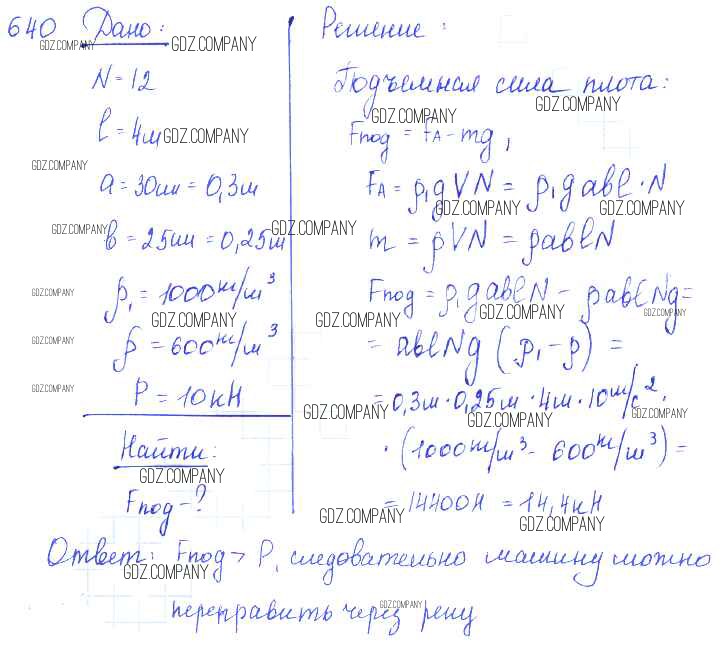 640 Дано:
GDZ.COMPANY
GDZ.COMPANY
N = 12
l = 4м
GDZ.COMPANY
GDZ.COMPANY
a = 30см = 0,3м
GDZ.COMPANY
b = 25см = 0,25м
GDZ.COMPANY
ρ₁ = 1000кг/м³
GDZ.COMPANY
GDZ.COMPANY
ρ = 600кг/м³
GDZ.COMPANY
P = 10кН
GDZ.COMPANY
Найти:
GDZ.COMPANY
Fпод - ?
Решение:
Подъемная сила плота:
GDZ.COMPANY
GDZ.COMPANY
Fпод = FA - mg,
FA = ρ₁gVN = ρ₁gabl·N
GDZ.COMPANY
GDZ.COMPANY
m = ρVN = ρablN
Fпод = ρ₁gablN - ρablNg =
GDZ.COMPANY
GDZ.COMPANY
GDZ.COMPANY
= ablNg (ρ₁ - ρ) =
= 0,3м · 0,25м · 4м · 10м/с² ·
GDZ.COMPANY
GDZ.COMPANY
GDZ.COMPANY
· (1000кг/м³ - 600кг/м³) =
= 14400Н = 14,4кН
GDZ.COMPANY
GDZ.COMPANY
Ответ: Fпод > P, следовательно машину можно
GDZ.COMPANY
переправить через реку
GDZ.COMPANY